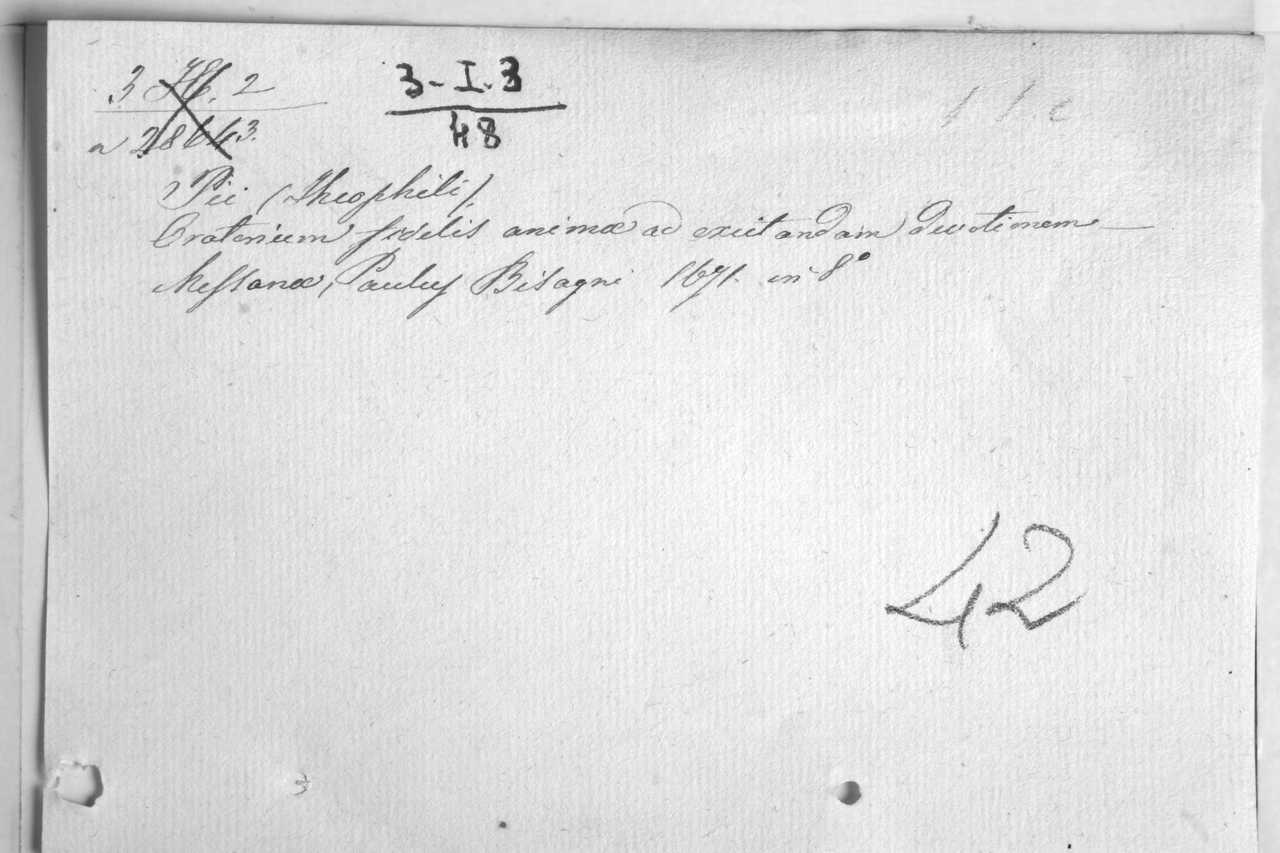 3-I.3
48
Pii (Theophili)
Oratorium fidelis animæ ad excitandam devotionem —
Messanæ, Paulus Bisagni 1671. in 8°
42